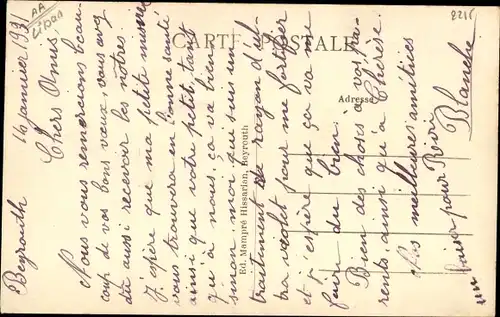 AA
Liban
2215
CARTE POSTALE
Adresse
Ed. Mampré Hissarian, Beyrouth
Beyrouth 16 janvier 1931
Chers Amis,
Nous vous remercions beau-
coup de vos bons vœux vous avez
dû aussi recevoir les nôtres.
J'espère que ma petite mimi
vous trouvera en bonne santé
ainsi que votre petit, tant
qu'à nous, ça va bien
sinon moi qui suis un
traitement de rayon d'ul-
tra violet pour me fortifier
et j'espère que ça va me
faire du bien.
Bien des choses à vos pa-
rents ainsi qu'à Thérèse.
Mes meilleures amitiés
Baiser pour Riri
Blanche